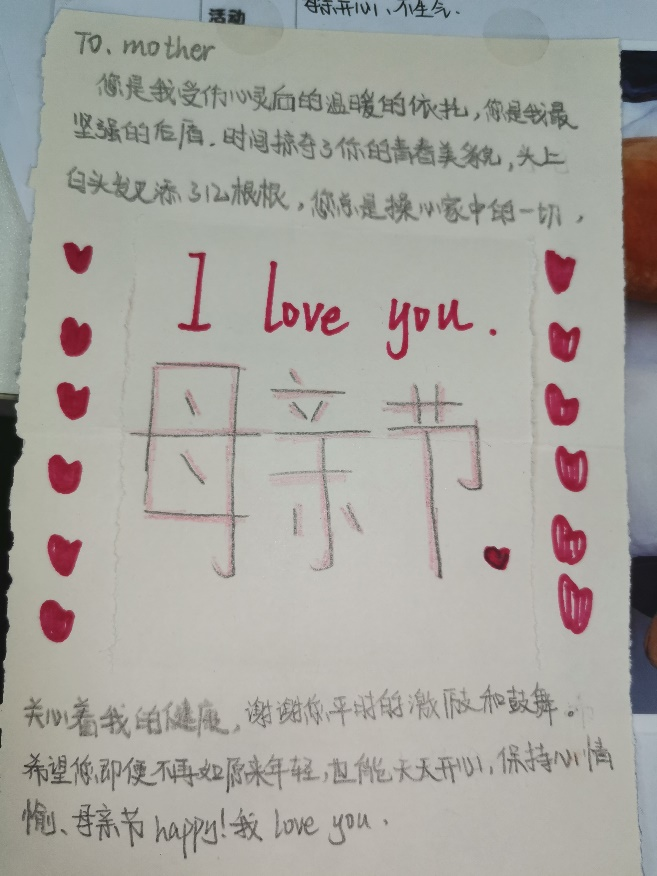 活动
母亲开心、不生气.
TO. mother
您是我受伤心灵后的温暖的依扎，您是我最
坚强的后盾. 时间掠夺了你的青春美貌, 头上
白头发又添了几根根，您总是操心家中的一切，
I love you.
母亲节
关心着我的健康, 谢谢你平时的激励和鼓舞。
希望你即便不再如原来年轻, 也能天天开心, 保持心情
愉、母亲节happy! 我 love you.